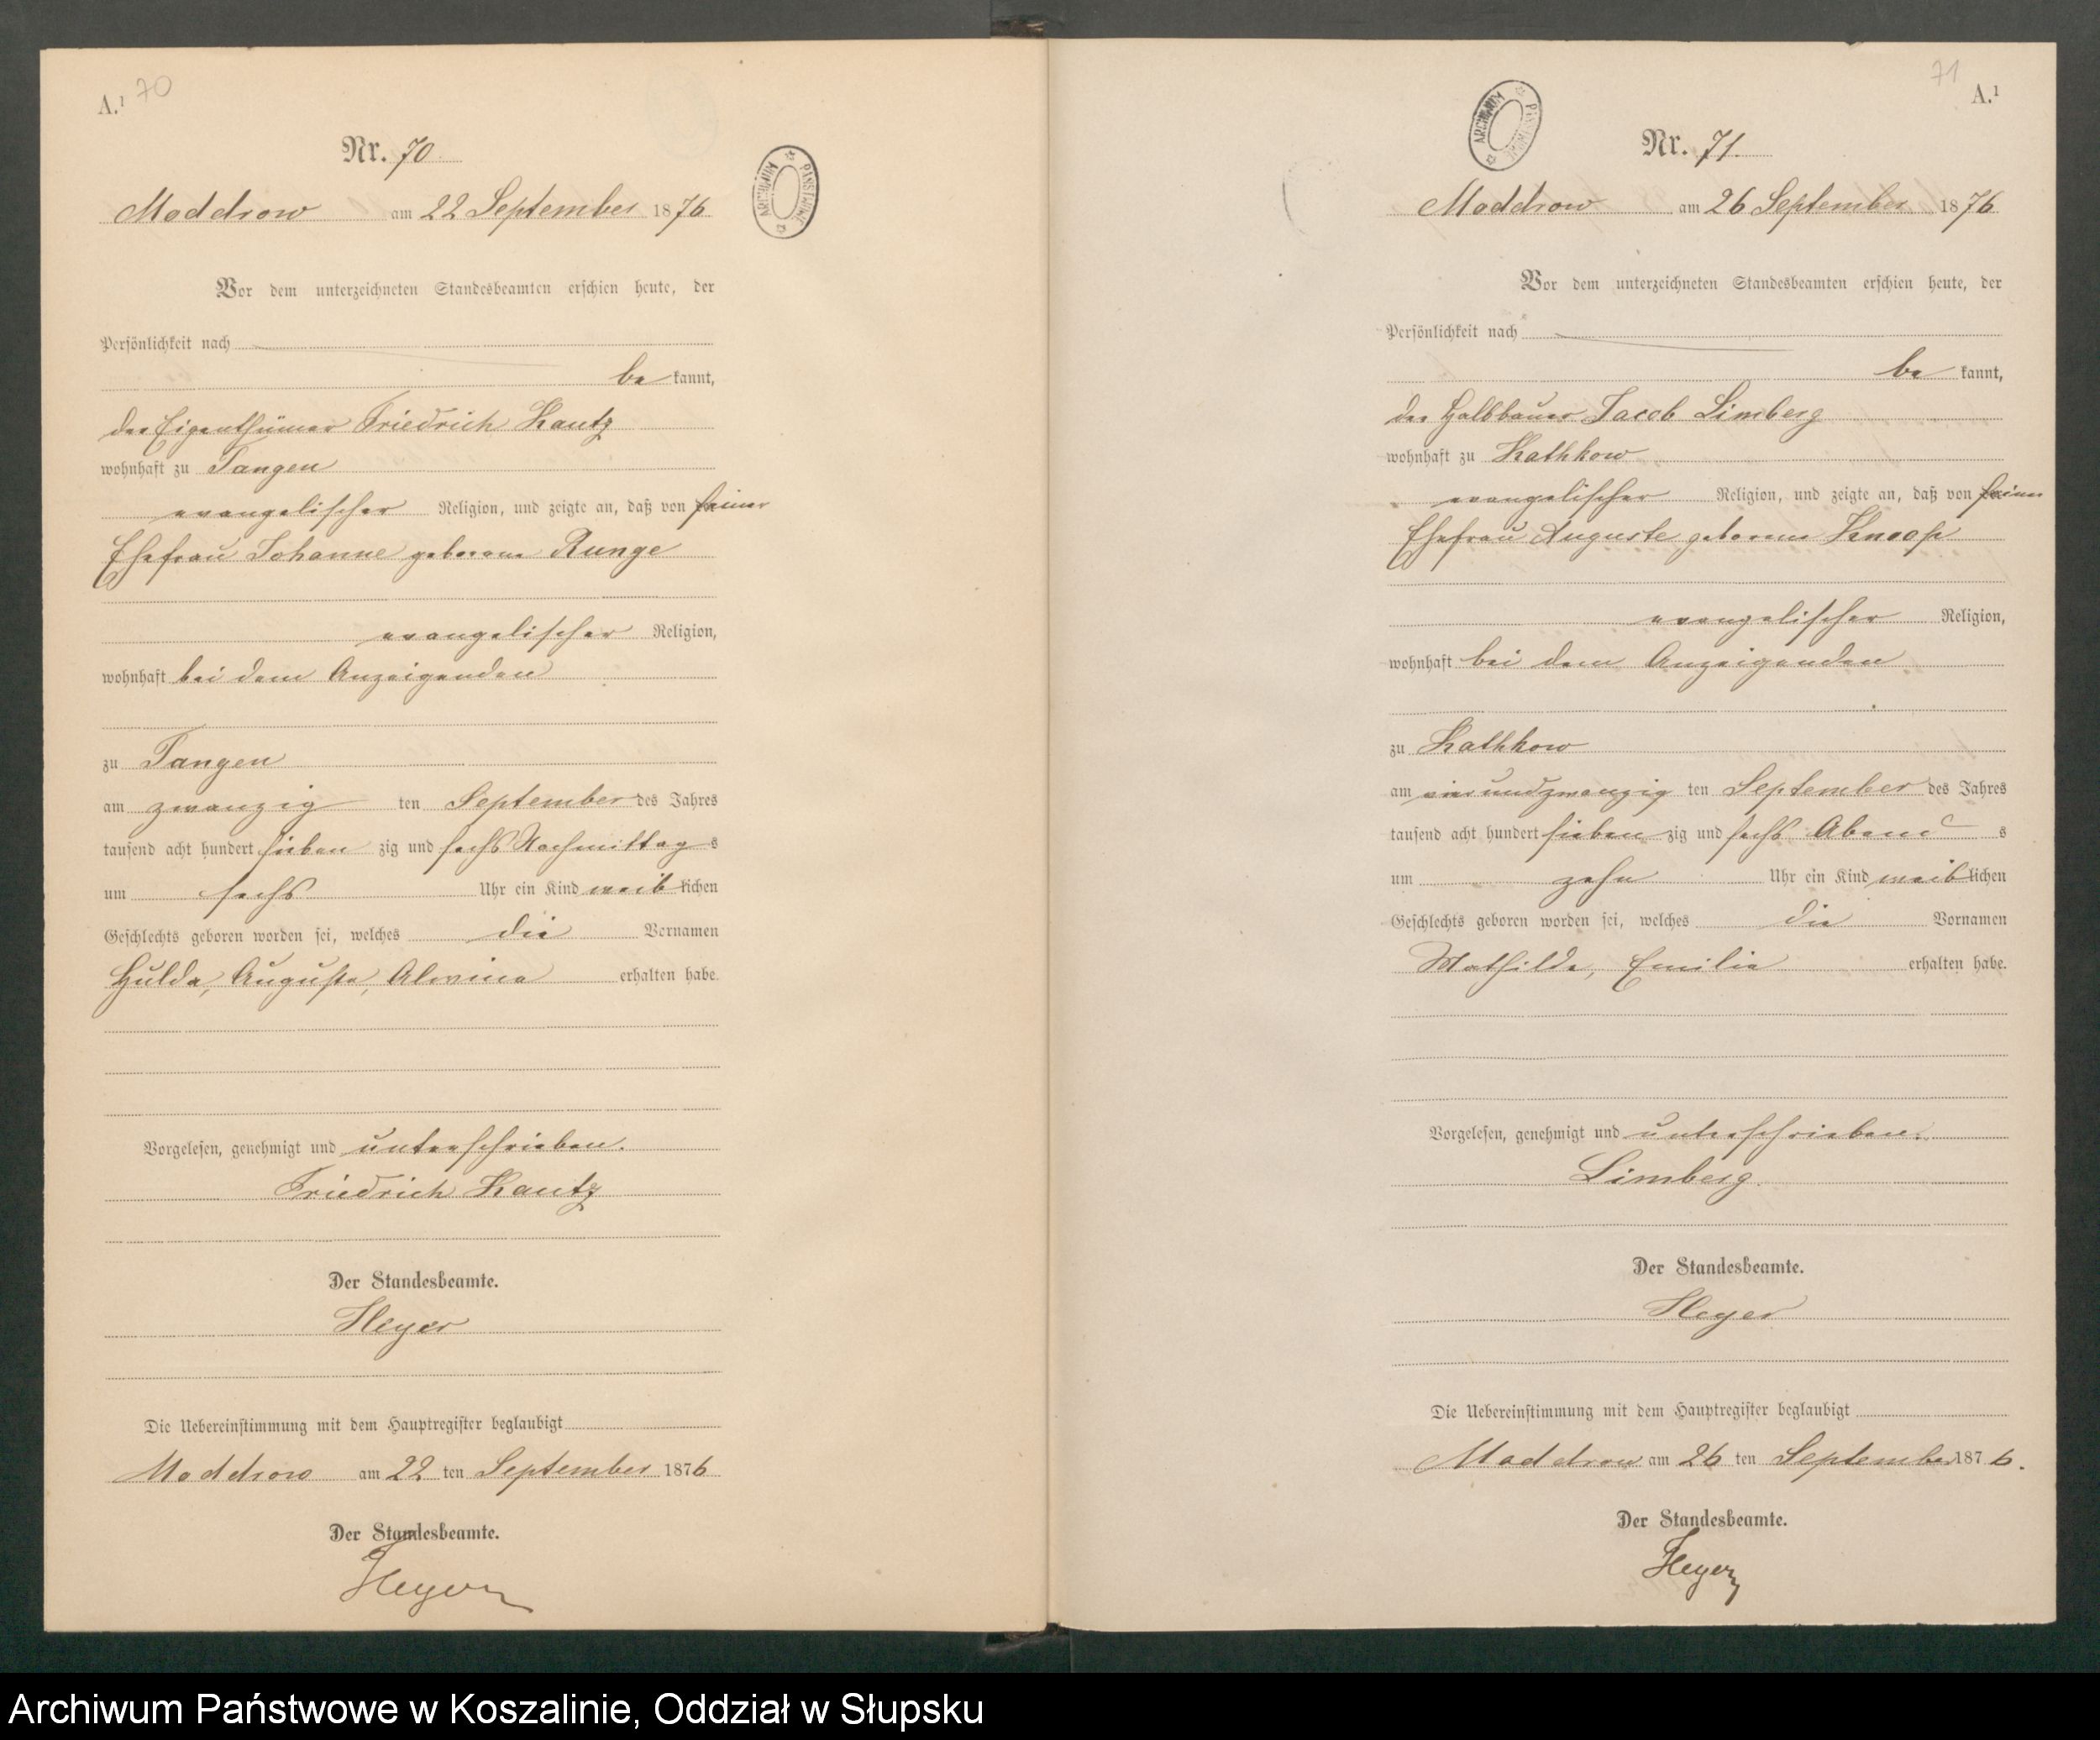 A.¹ 70
Nr. 70
ARCHIWUM PAŃSTWOWE
Moddrow am 22 September 1876
Vor dem unterzeichneten Standesbeamten erschien heute, der
Persönlichkeit nach
be kannt,
der Eigenthümer Friedrich Kautz
wohnhaft zu Tangen
evangelischer Religion, und zeigte an, daß von seiner
Ehefrau Johanne geborene Runge
evangelischer Religion,
wohnhaft bei dem Anzeigenden
zu Tangen
am zwanzig ten September des Jahres
tausend acht hundert sieben zig und sechs Nachmittag s
um sechs Uhr ein Kind weib lichen
Geschlechts geboren worden sei, welches die Vornamen
Hulda, Auguste, Alwine erhalten habe.
Vorgelesen, genehmigt und unterschrieben.
Friedrich Kautz
Der Standesbeamte.
Heyer
Die Uebereinstimmung mit dem Hauptregister beglaubigt
Moddrow am 22 ten September 1876
Der Standesbeamte.
Heyer
71 A.¹
Nr. 71.
ARCHIWUM PAŃSTWOWE
Moddrow am 26 September 1876
Vor dem unterzeichneten Standesbeamten erschien heute, der
Persönlichkeit nach
be kannt,
der Halbbauer Jacob Limberg
wohnhaft zu Kathkow
evangelischer Religion, und zeigte an, daß von seiner
Ehefrau Auguste geborene Knoop
evangelischer Religion,
wohnhaft bei dem Anzeigenden
zu Kathkow
am einundzwanzig ten September des Jahres
tausend acht hundert sieben zig und sechs Abend s
um zehn Uhr ein Kind weib lichen
Geschlechts geboren worden sei, welches die Vornamen
Mathilde, Emilie erhalten habe.
Vorgelesen, genehmigt und unterschrieben.
Limberg.
Der Standesbeamte.
Heyer
Die Uebereinstimmung mit dem Hauptregister beglaubigt
Moddrow am 26 ten September 1876.
Der Standesbeamte.
Heyer
Archiwum Państwowe w Koszalinie, Oddział w Słupsku